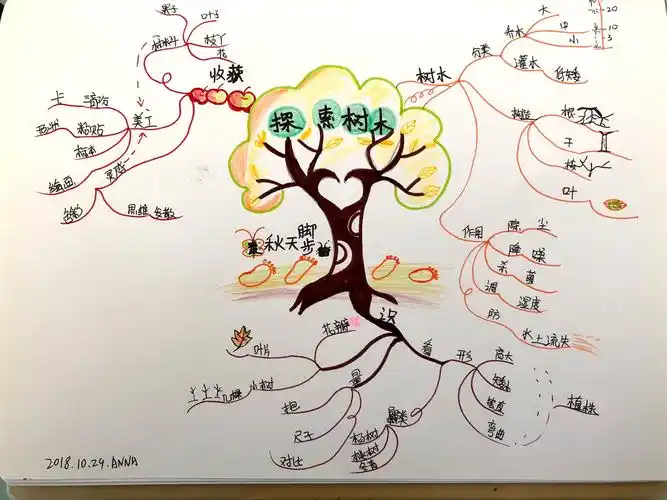 探索树木
秋天脚步
收获
材料
果子
叶子
枝丫
花
美工
卡
粘贴
标本
绘画
灵感
思维
树木
分类
乔木
大
中
小
20
10
3
灌木
低矮
构造
根
干
枝
叶
作用
除
尘
降
噪
杀
菌
调
湿度
防
水土流失
识
看
形
高大
矮小
弯曲
植株
花瓣
叶片
小树
量
抱
尺子
对比
种类
杨树
2018.10.29.ANNA